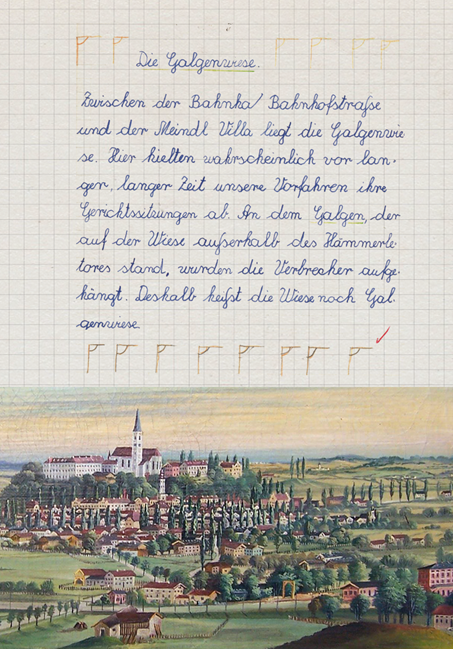 Die Galgenwiese.
Zwischen der Bahnha/ Bahnhofstraße
und der Meindl Villa liegt die Galgenwie
se. Hier hielten wahrscheinlich vor lan-
ger, langer Zeit unsere Vorfahren ihre
Gerichtssitzungen ab. An dem Galgen, der
auf der Wiese außerhalb des Hämmerle-
tores stand, wurden die Verbrecher aufge-
hängt. Deshalb heißt die Wiese noch Gal-
genwiese.